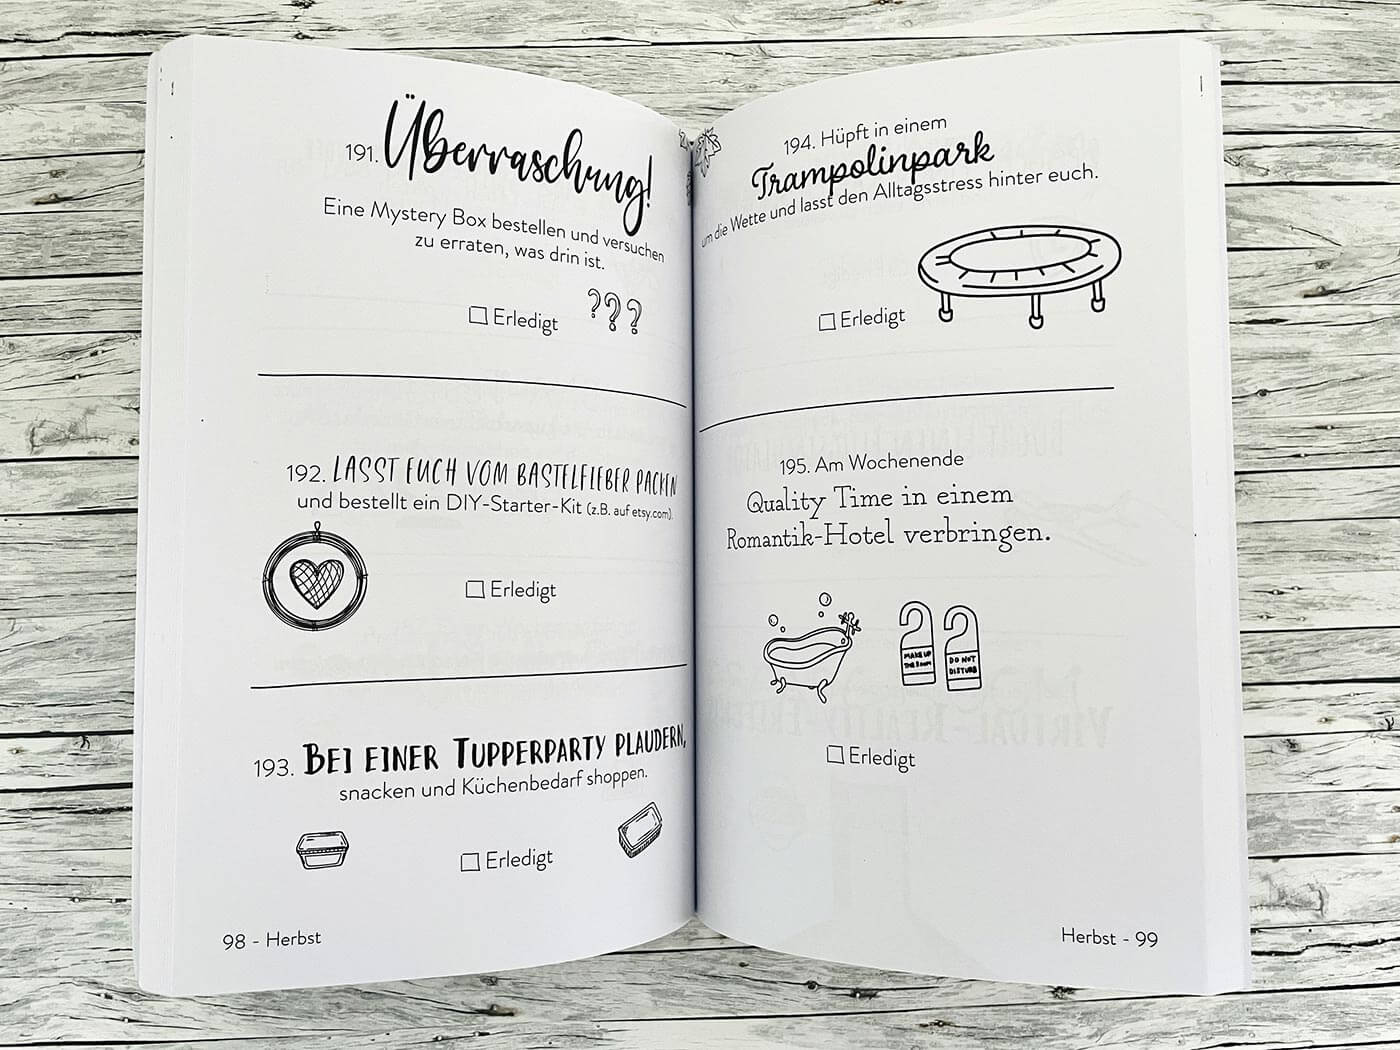 191. Überraschung!
Eine Mystery Box bestellen und versuchen
zu erraten, was drin ist.
Erledigt
???
192. LASST EUCH VOM BASTELFIEBER PACKEN
und bestellt ein DIY-Starter-Kit (z.B. auf etsy.com).
Erledigt
193. BEI EINER TUPPERPARTY PLAUDERN,
snacken und Küchenbedarf shoppen.
Erledigt
98 - Herbst
194. Hüpft in einem
Trampolinpark
um die Wette und lasst den Alltagsstress hinter euch.
Erledigt
195. Am Wochenende
Quality Time in einem
Romantik-Hotel verbringen.
MAKE UP
THE ROOM
DO NOT
DISTURB
Erledigt
Herbst - 99